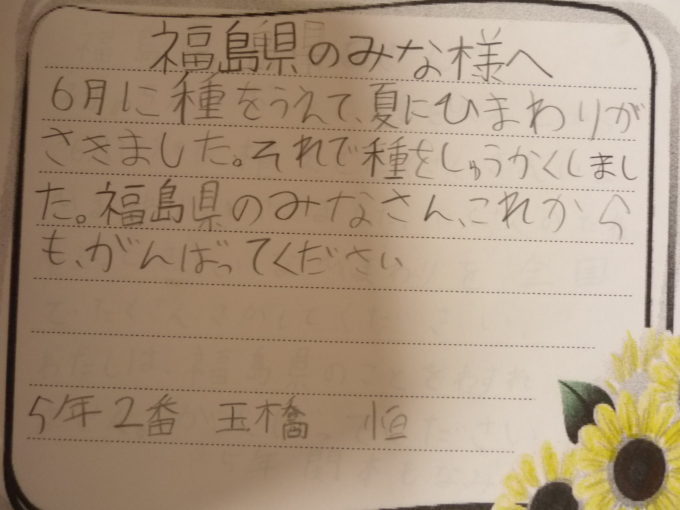 福島県のみな様へ
6月に種をうえて、夏にひまわりが
さきました。それで種をしゅうかくしまし
た。福島県のみなさん、これから
も、がんばってください
5年2番 玉橋 恒